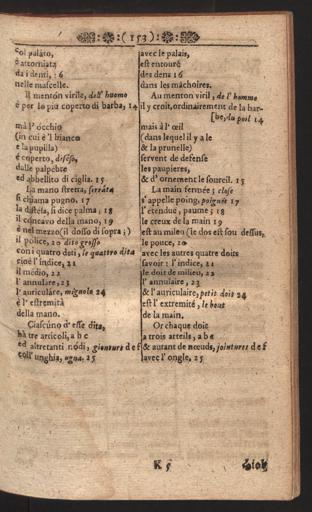 (153)
col palato,
è attorniata
da i denti, 16
nelle mascelle.
Il menton virile, dell' huomo
è per lo più coperto di barba, 14
mà l' occhio
(in cui è 'l bianco
e la pupilla)
è coperto, difeso,
dalle palpebre
ed abbellito di ciglia. 15
La mano stretta, serrata
si chiama pugno. 17
la distesa, si dice palma, 18
il concavo della mano, 19
è nel mezzo (il dosso di sopra;)
il police, 20 dito grosso
con i quatro deti, le quattro dita
cioè l' indice, 21
il médio, 22
l' annulare, 23
l' auriculare, mignolo 24
è l' estremità
della mano.
Ciascuno d' esse dita,
hà tre articoli, a b c
ed altretanti nodi, gionture d e f
coll' unghia, ugna. 25
avec le palais,
est entouré
des dens 16
dans les mâchoires.
Au menton viril, de l' homme
il y croit, ordinairement de la bar-
[be, du poil 14
mais à l' œil
(dans lequel il y a le
& la prunelle)
servent de defense
les paupieres,
& d' ornement le sourcil. 15
La main fermée; close
s' appelle poing, poignée 17
l' étenduë, paume; 18
le creux de la main 19
est au mileu (le dos est sou dessus,
le pouce, 20
avec les autres quatre doits
savoir: l' indice, 21
le doit de milieu, 22
l' annulaire, 23
& l' auriculaire, petit doit 24
est l' extremité, le bout
de la main.
Or chaque doit
a trois arteils, a b c
& autant de nœuds, jointures d e f
avec l' ongle, 25
K 5